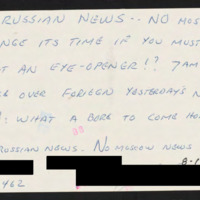 RUSSIAN NEWS.. NO MOS
NGE ITS TIME IF YOU MUST
OT AN EYE-OPENER!? 7AM
OVER FOREIGN YESTERDAY'S N
! WHAT A BORE TO COME HO
RUSSIAN NEWS. NO MOSCOW NEWS
8-1
462